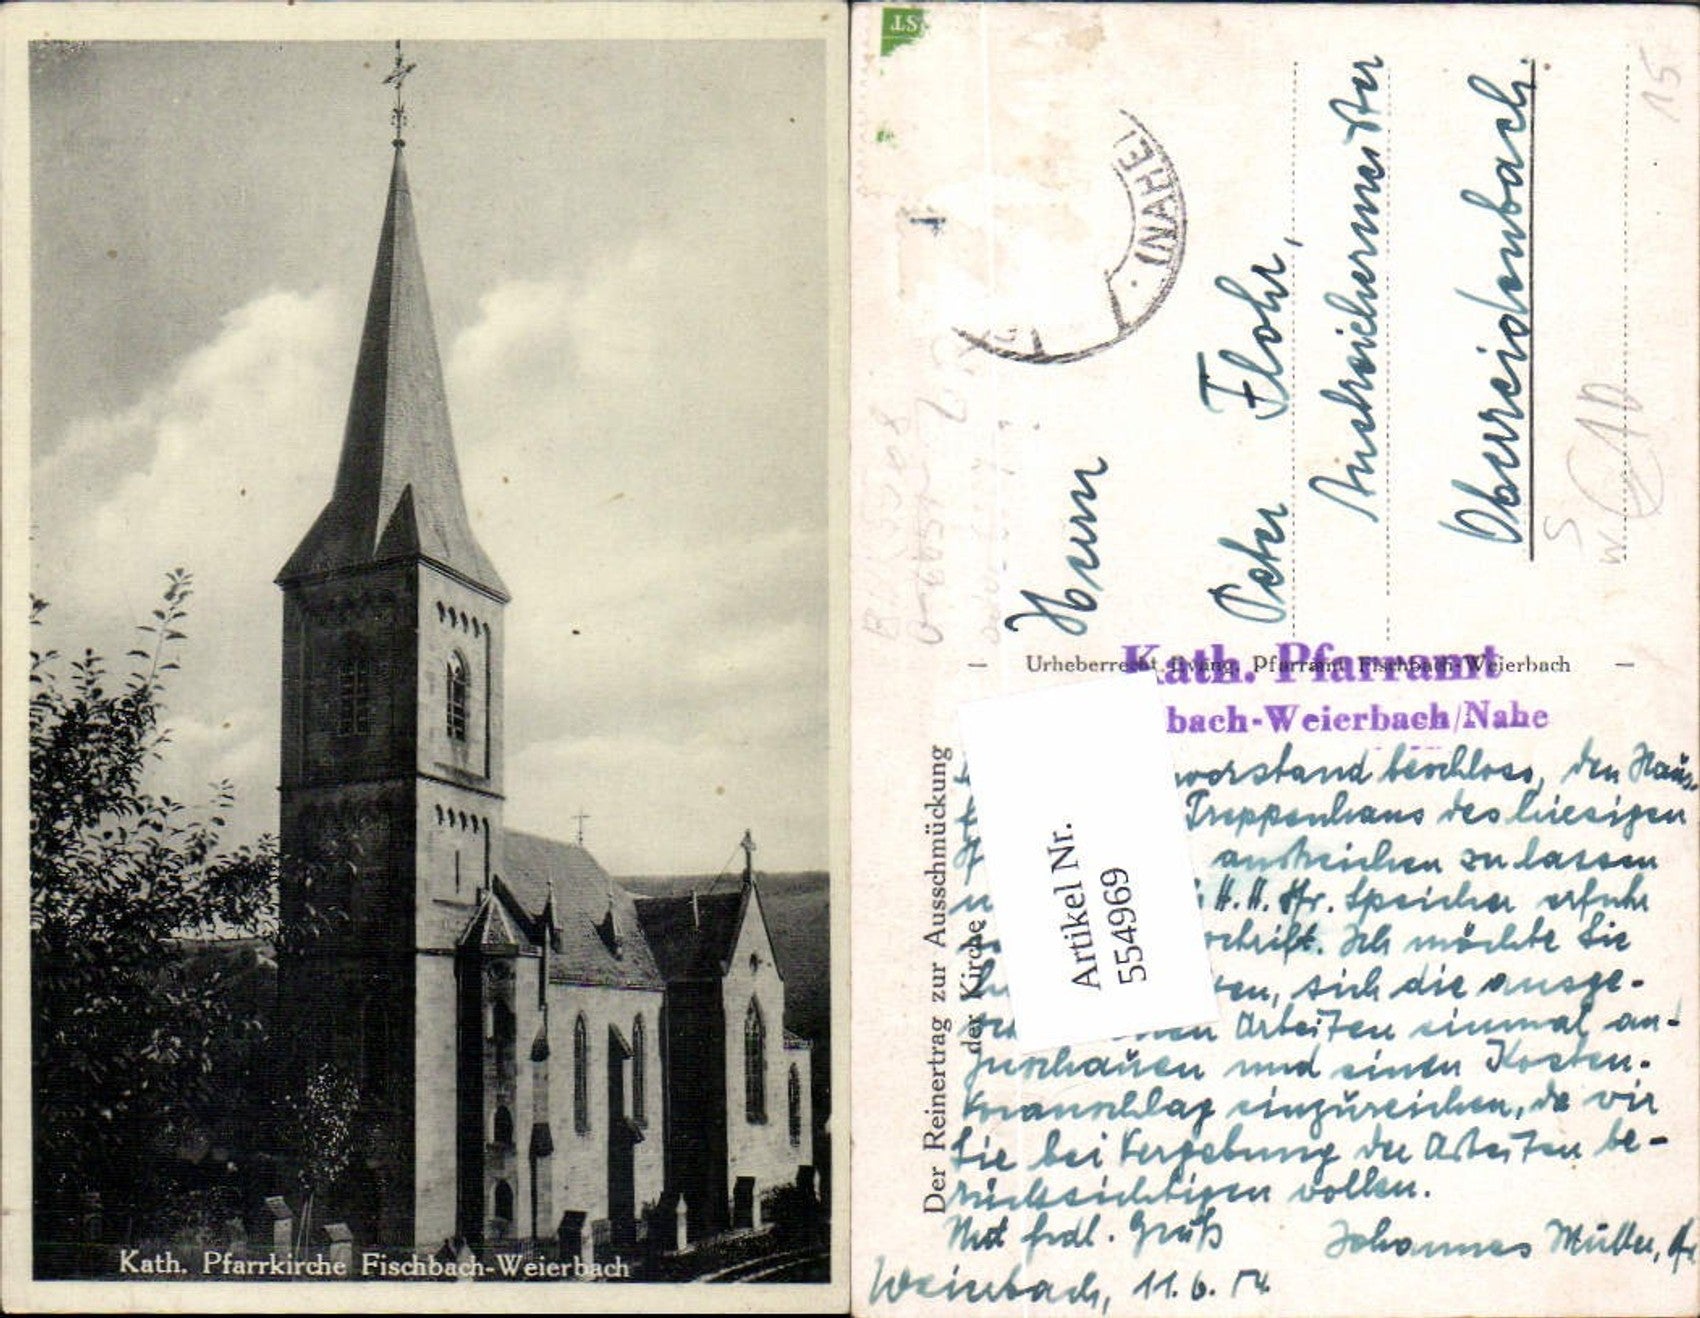 Kath. Pfarrkirche Fischbach-Weierbach
ST
(NAHE)
15
Herrn
Peter Flohr,
Anstreichermeister
Oberreidenbach.
Urheberrecht Evang. Pfarramt Fischbach-Weierbach
Kath. Pfarramt
bach-Weierbach/Nahe
Der Reinertrag zur Ausschmückung
der Kirche
Artikel Nr.
554969
vorstand beschloss, den Haus
Treppenhaus des hiesigen
anstreichen zu lassen
H. H. Pfr. Speicher erfuhr
schrift. Ich möchte Sie
ten, sich die ausge-
en Arbeiten einmal an-
zuschauen und einen Kosten-
voranschlag einzureichen, da wir
Sie bei Vergebung der Arbeiten be-
rücksichtigen wollen.
Mit frdl. Gruß
Johannes Müller, Pfr
Weierbach, 11. 6. 54